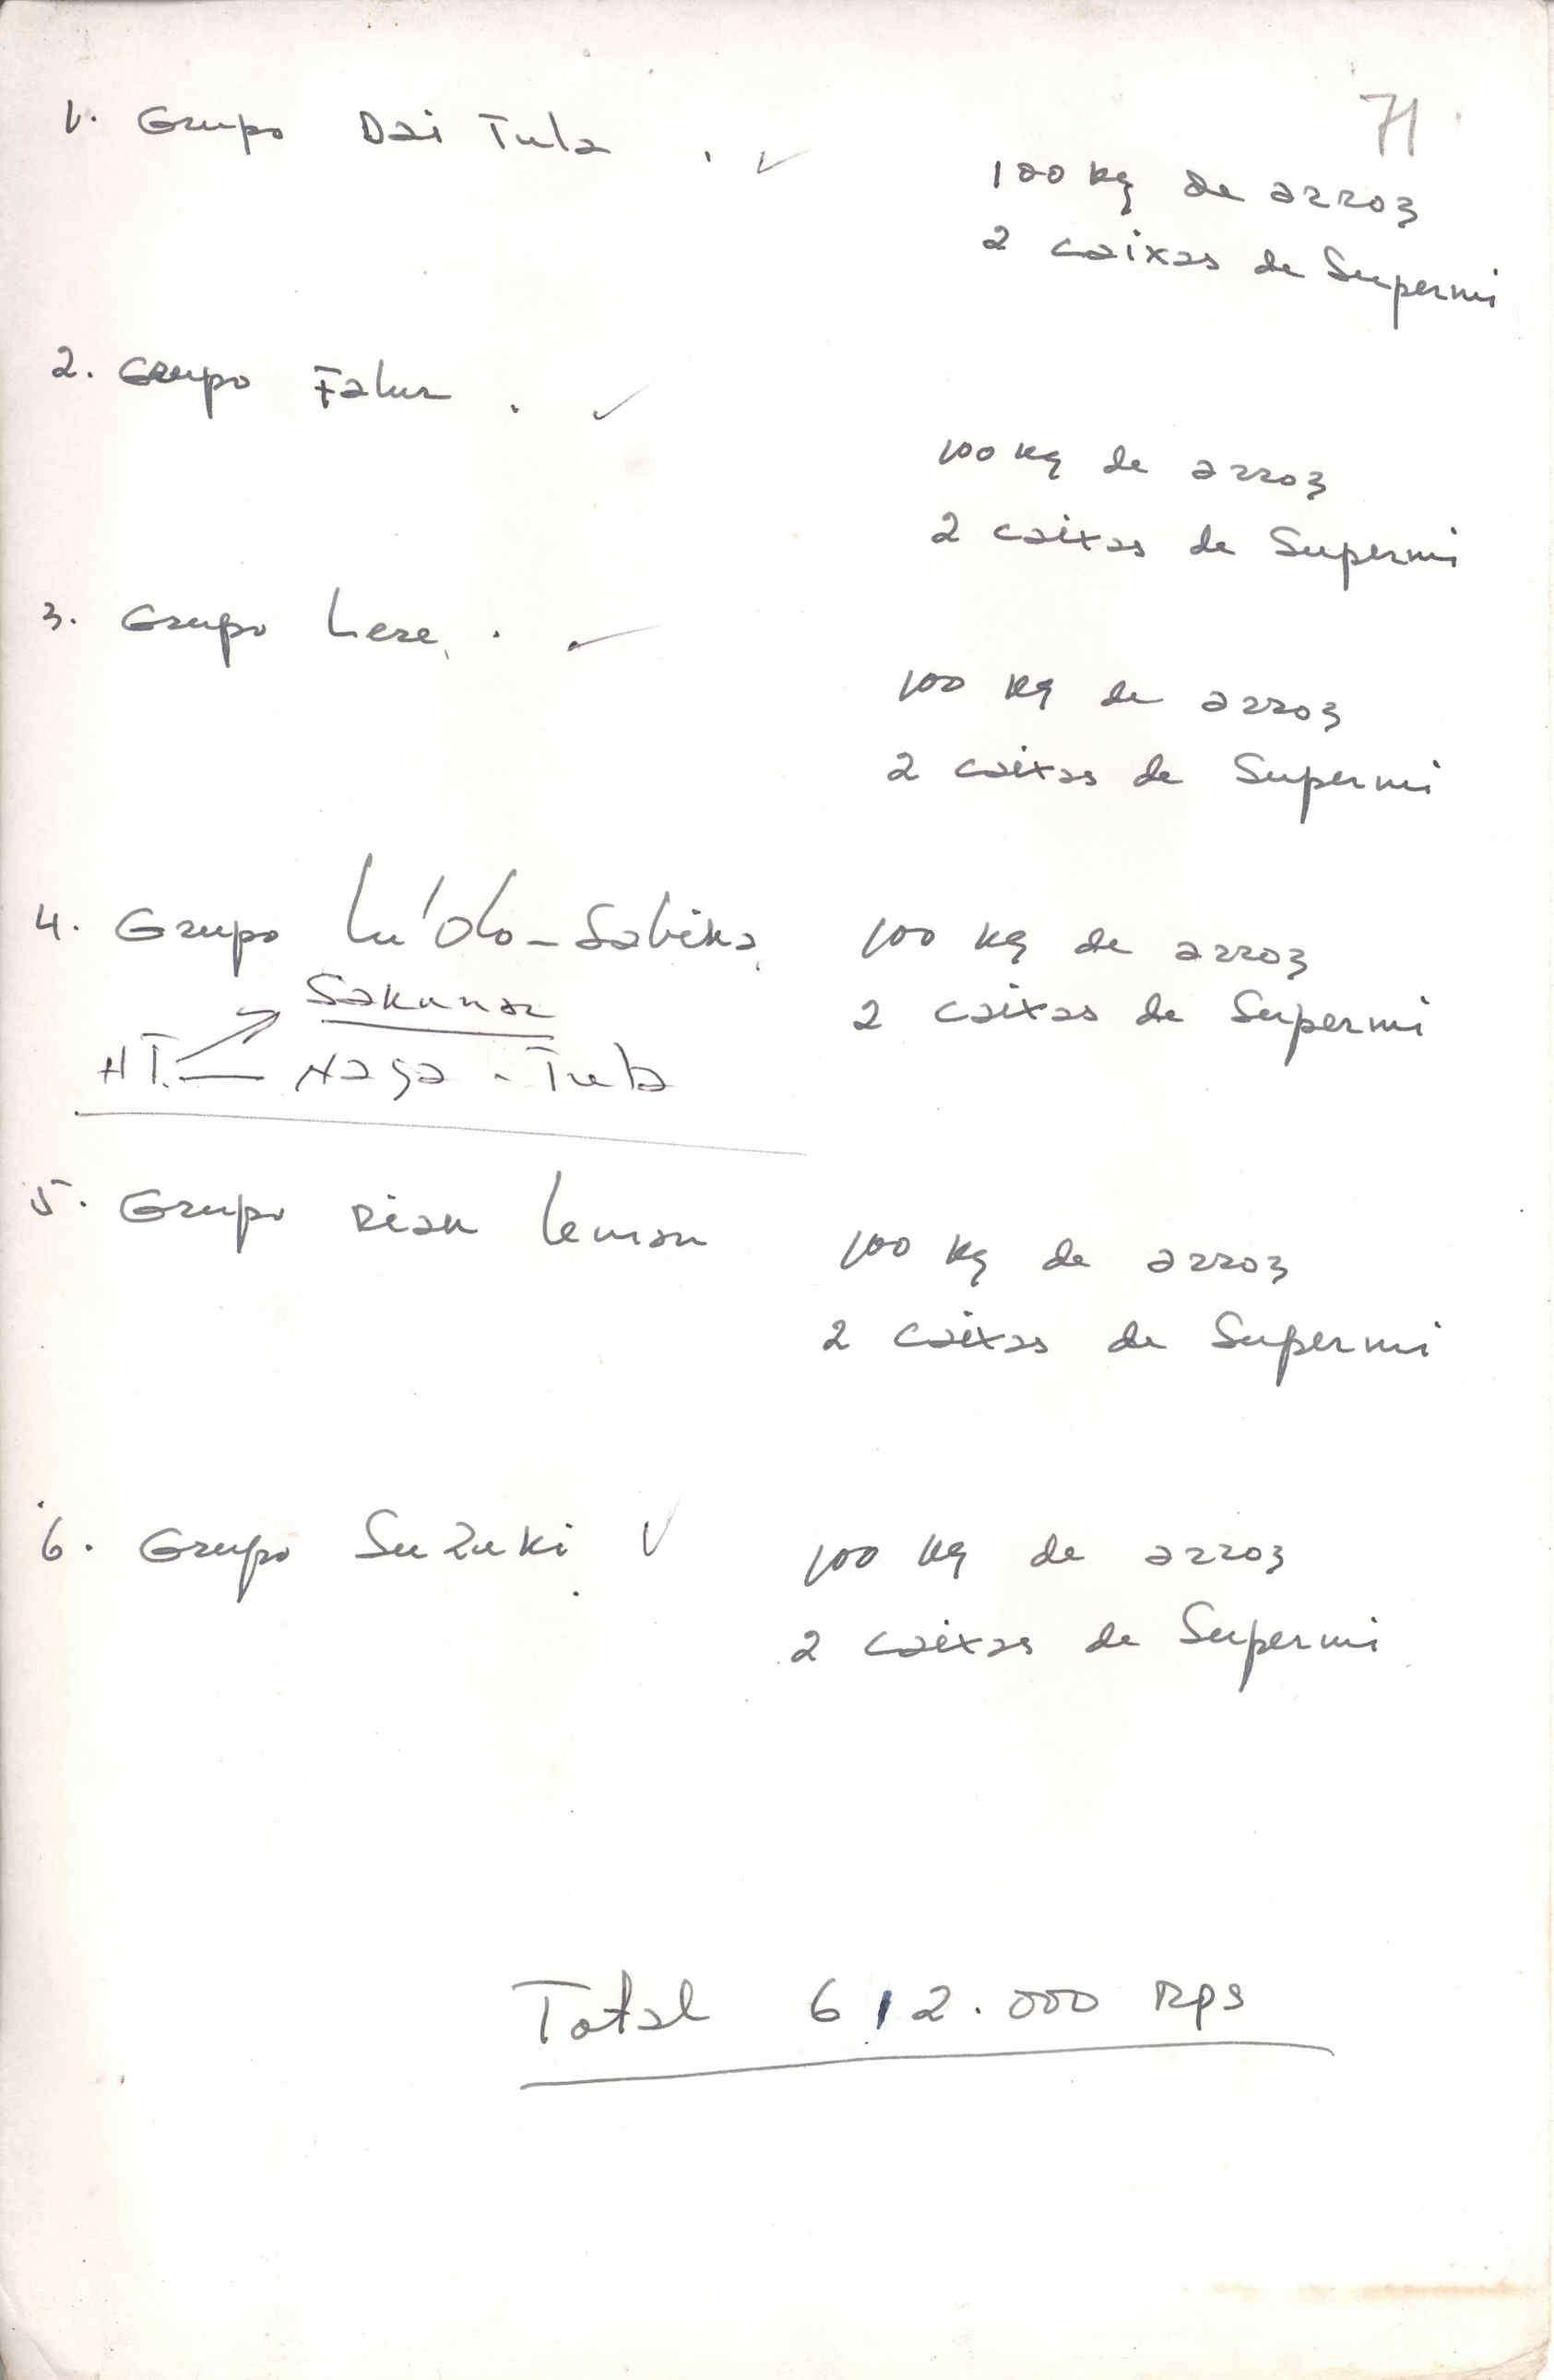 71
1. Grupo Dai Tula . ✓
100 kg de arroz
2 caixas de Supermi
2. Grupo Falur . ✓
100 kg de arroz
2 caixas de Supermi
3. Grupo Lere . ✓
100 kg de arroz
2 caixas de Supermi
4. Grupo Lu'Olo - Sabika 100 kg de arroz
Sakunar 2 caixas de Supermi
HT. Naga - Tula
5. Grupo Rian Leman 100 kg de arroz
2 caixas de Supermi
6. Grupo Suzuki ✓ 100 kg de arroz
2 caixas de Supermi
Total 612.000 Rps